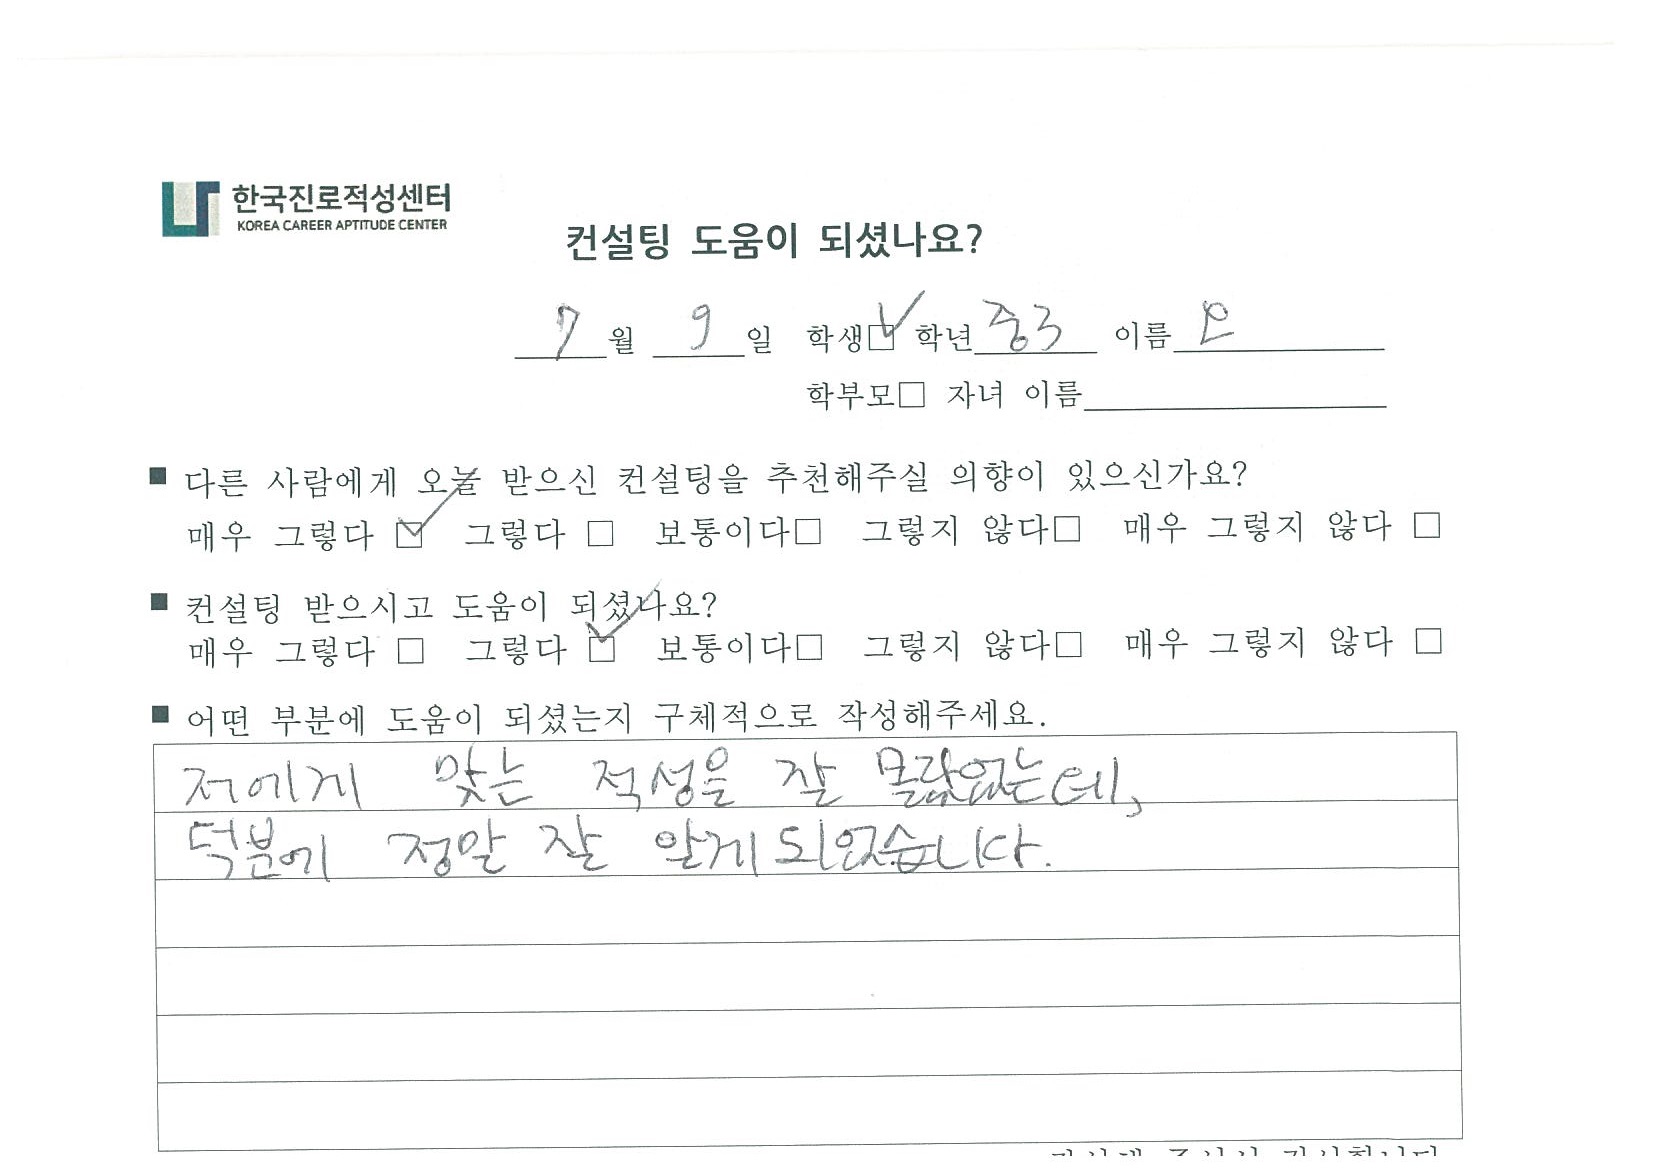 한국진로적성센터
KOREA CAREER APTITUDE CENTER
컨설팅 도움이 되셨나요?
7월 9일 학생☑ 학년 중3 이름
학부모□ 자녀 이름
■ 다른 사람에게 오늘 받으신 컨설팅을 추천해주실 의향이 있으신가요?
매우 그렇다 ☑ 그렇다 □ 보통이다□ 그렇지 않다□ 매우 그렇지 않다 □
■ 컨설팅 받으시고 도움이 되셨나요?
매우 그렇다 □ 그렇다 ☑ 보통이다□ 그렇지 않다□ 매우 그렇지 않다 □
■ 어떤 부분에 도움이 되셨는지 구체적으로 작성해주세요.
저에게 맞는 적성을 잘 몰랐었는데,
덕분에 정말 잘 알게 되었습니다.